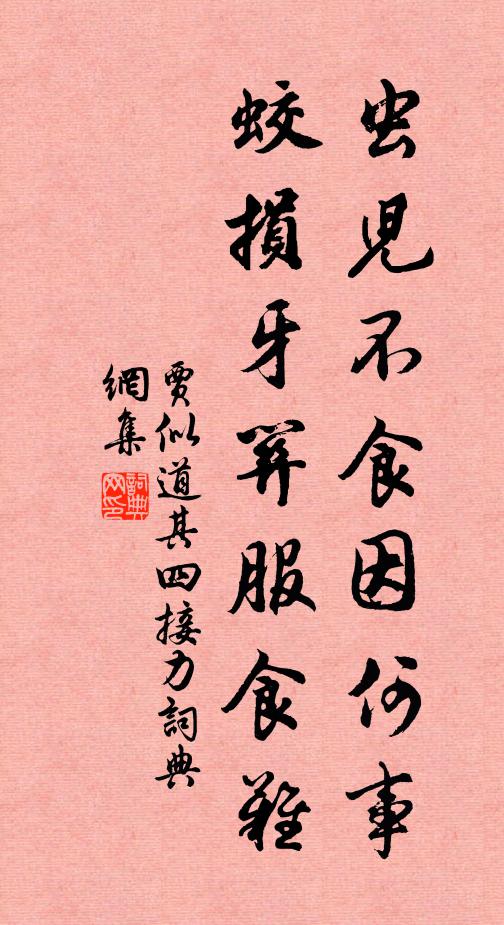 虫児不食因何事
蛟損牙筭服食難
賈似道其四接力詞典
網集
詞典
网印